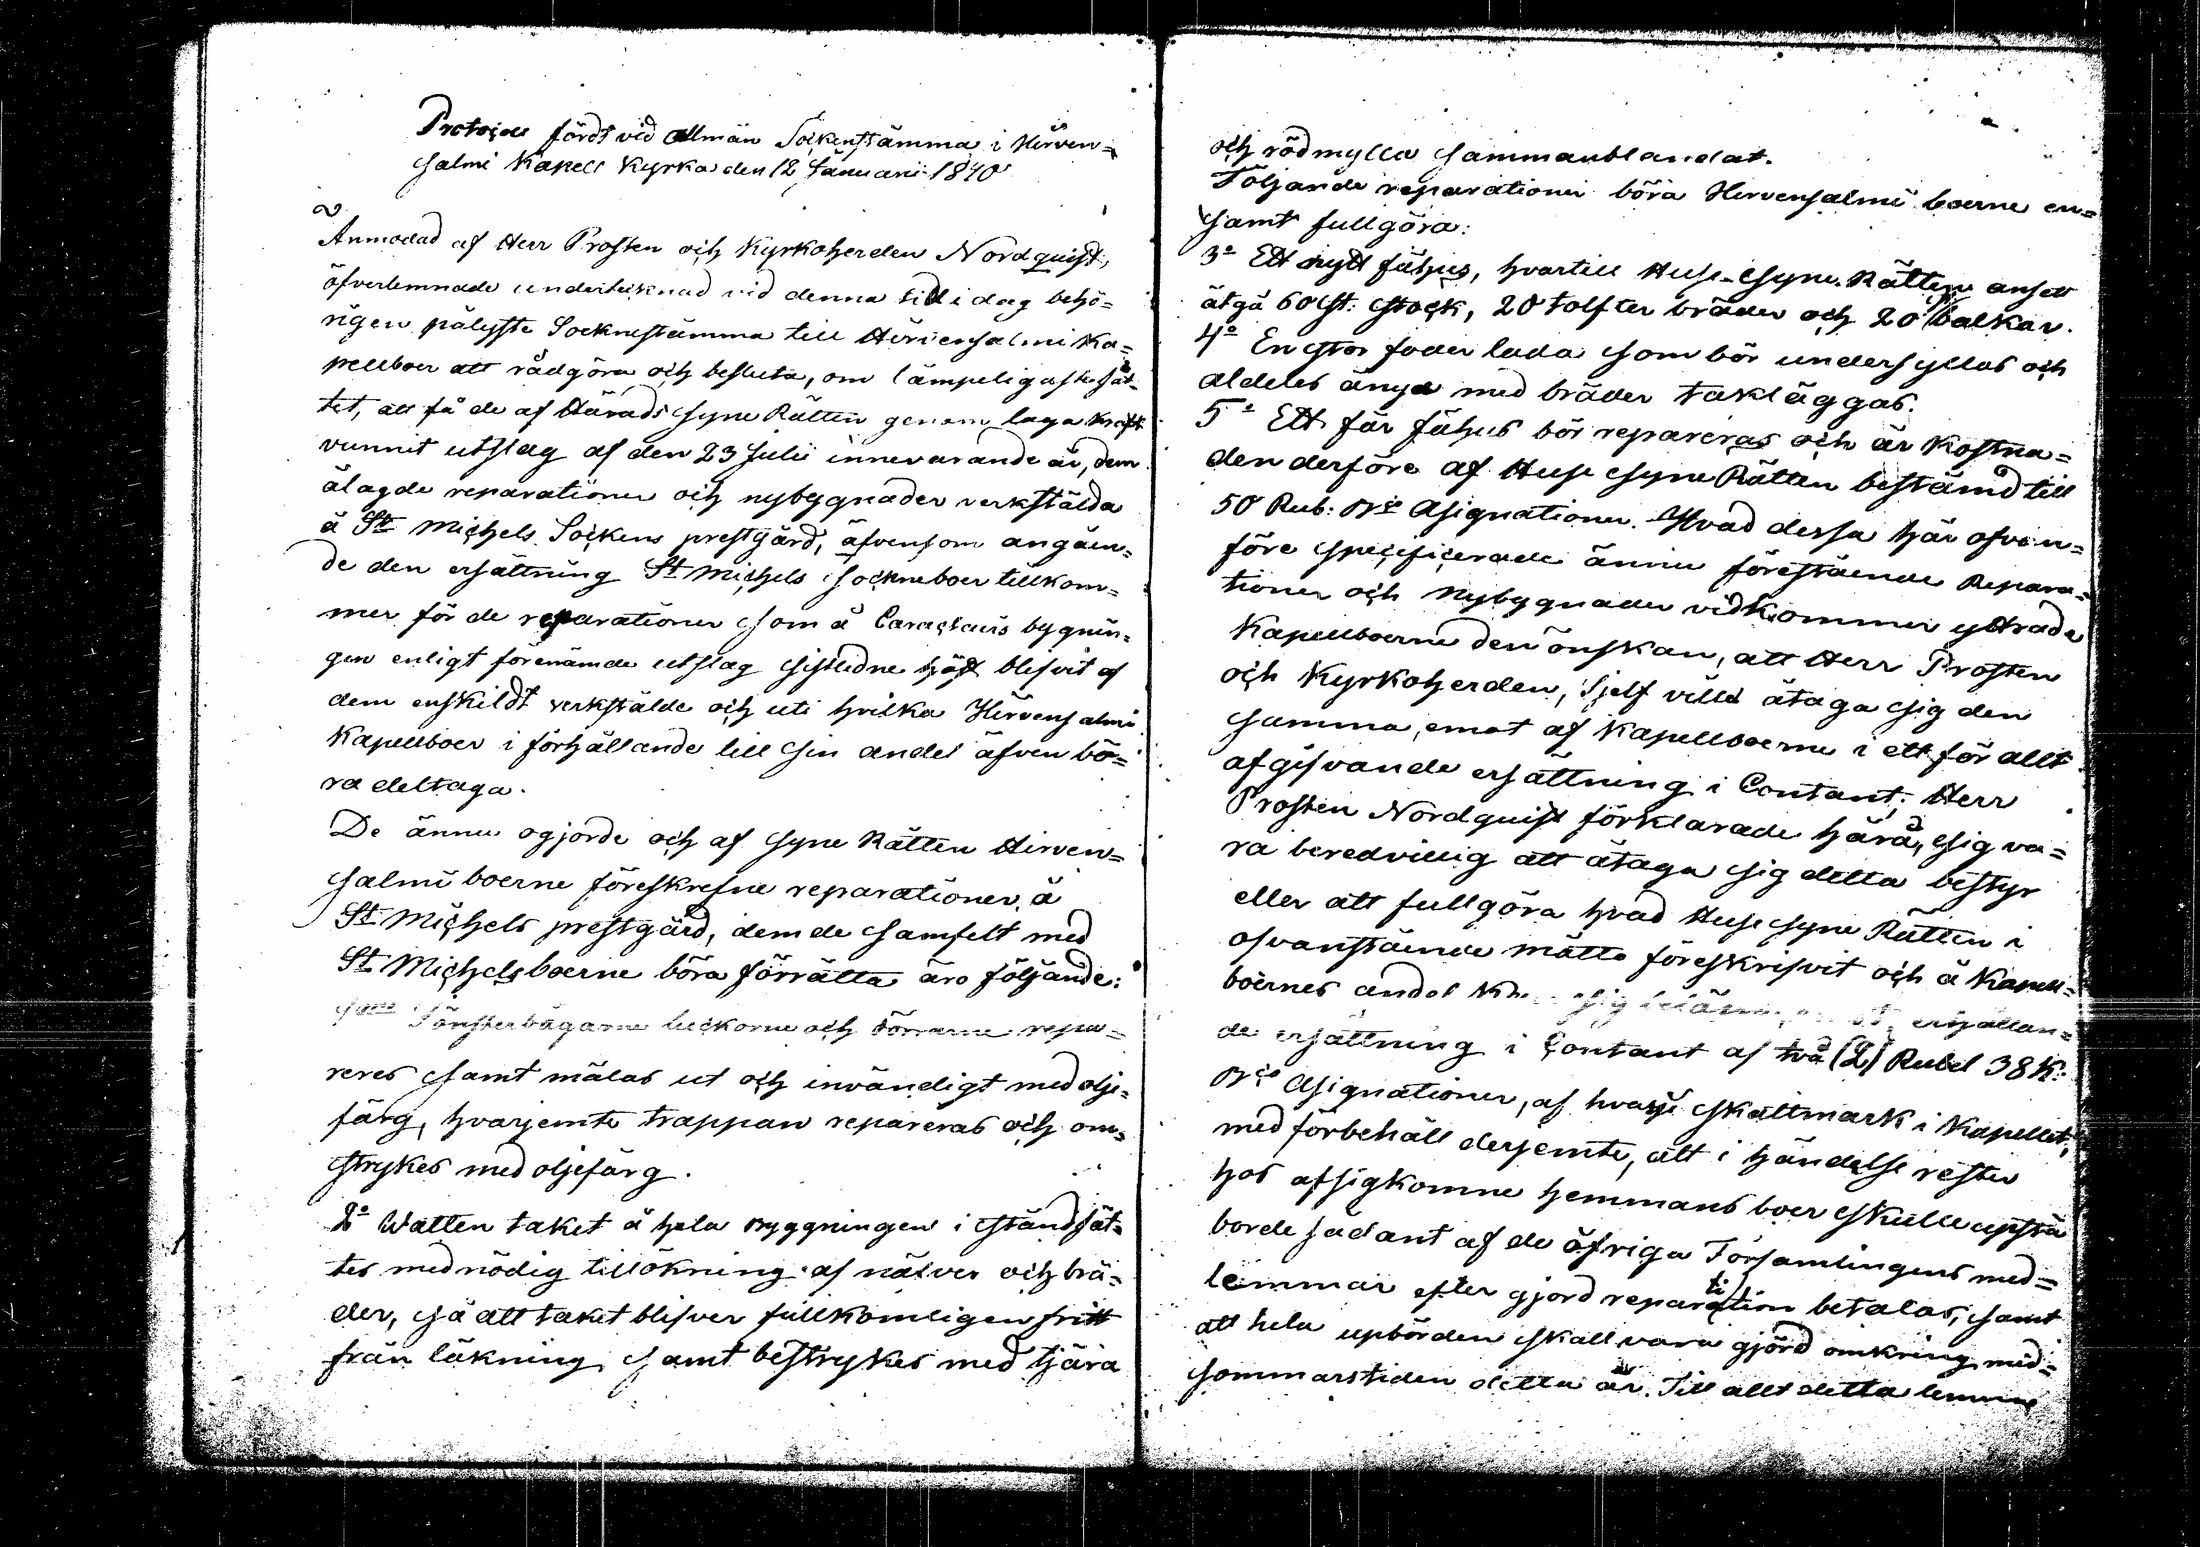 Protocoll fördt vid allmän Sockenstämma i Hirven=
salmi Kapell Kyrka den 12 Januari 1840
Anmodad af Herr Prosten och Kyrkoherden Nordquist,
öfverlemnade undertecknad vid denna till i dag behö=
rigen pålyste Socknestämma till Hirvensalmi Ka=
pellboer att rådgöra och besluta, om lämpeligaste sät=
tet, att få de af Härads Syne Rätten genom laga kraft
vunnit utslag af den 23 Julii innevarande år, dem
ålagde reparationer och nybygnader verkstälda
å St Michels Sockens prestgård, äfvensom angåen=
de den ersättning St Michels sockneboer tillkom=
mer för de reparationer som å Caraktärs bygnin=
gen enligt förenämde utslag sistledne höst blifvit af
dem enskildt verkstälde och uti hvilka Hirvensalmi
Kapellboer i förhållande till sin andel äfven bö=
ra deltaga.
De ännu ogjorde och af Syne Rätten Hirven=
salmi boerne föreskrefne reparationer å
St Michels prestgård, dem de samfelt med
St Michelsboerne böra förrätta äro följande:
1mo Fönsterbågarne luckorne och dörrarne repa=
reres samt målas ut och invändigt med olje=
färg, hvarjemte trappan repareras och om=
strykes med oljefärg.
2o Watten taket å hela Byggningen i ståndsät=
tes med nödig tillökning af näfver och brä=
der, så att taket blifver fullkomligen fritt
från läkning samt bestrykes med tjära
och rödmylla sammanblandat.
Följande reparationer böra Hirvensalmi boerne en=
samt fullgöra:
3o Ett nytt fähus, hvartill Huse-Syne Rätten ansett
åtgå 60 st: stock, 20 tolfter bräder och 20 balkar.
4o En stor foder lada som bör undersyllas och
aldeles ånyo med bräder takläggas.
5o Ett får fähus bör repareras och är kostna=
den derföre af Huse Syne Rätten bestämd till
50 Rub: Bco Assignationer. Hvad dessa här ofvan=
före specificerade ännu förestående Repara=
tioner och nybygnader vidkommer yttrade
Kapellboerne den önskan, att Herr Prosten
och Kyrkoherden, sjelf ville åtaga sig den
samma, emot af Kapellboerne i ett för allt
afgifvande ersättning i Contant; Herr
Prosten Nordquist förklarade härå, sig va=
ra beredvillig att åtaga sig detta bestyr
eller att fullgöra hvad Huse Syne Rätten i
ofvanstående måtto föreskrifvit och å Kapell=
boernes andel sig erhållan=
de ersättning i Contant af två (2) Rubel 38 K:
Bco Assignationer, af hvarje skattmark i Kapellet,
med förbehåll derjemte, att i händelse rester
hos afsigkomne hemmans boer skulle uppstå
borde sådant af de öfriga Församlingens med=
lemmar efter gjord repartition betalas; samt
att hela upbörden skall vara gjord omkring mid=
sommarstiden detta år. Till allt detta lemna